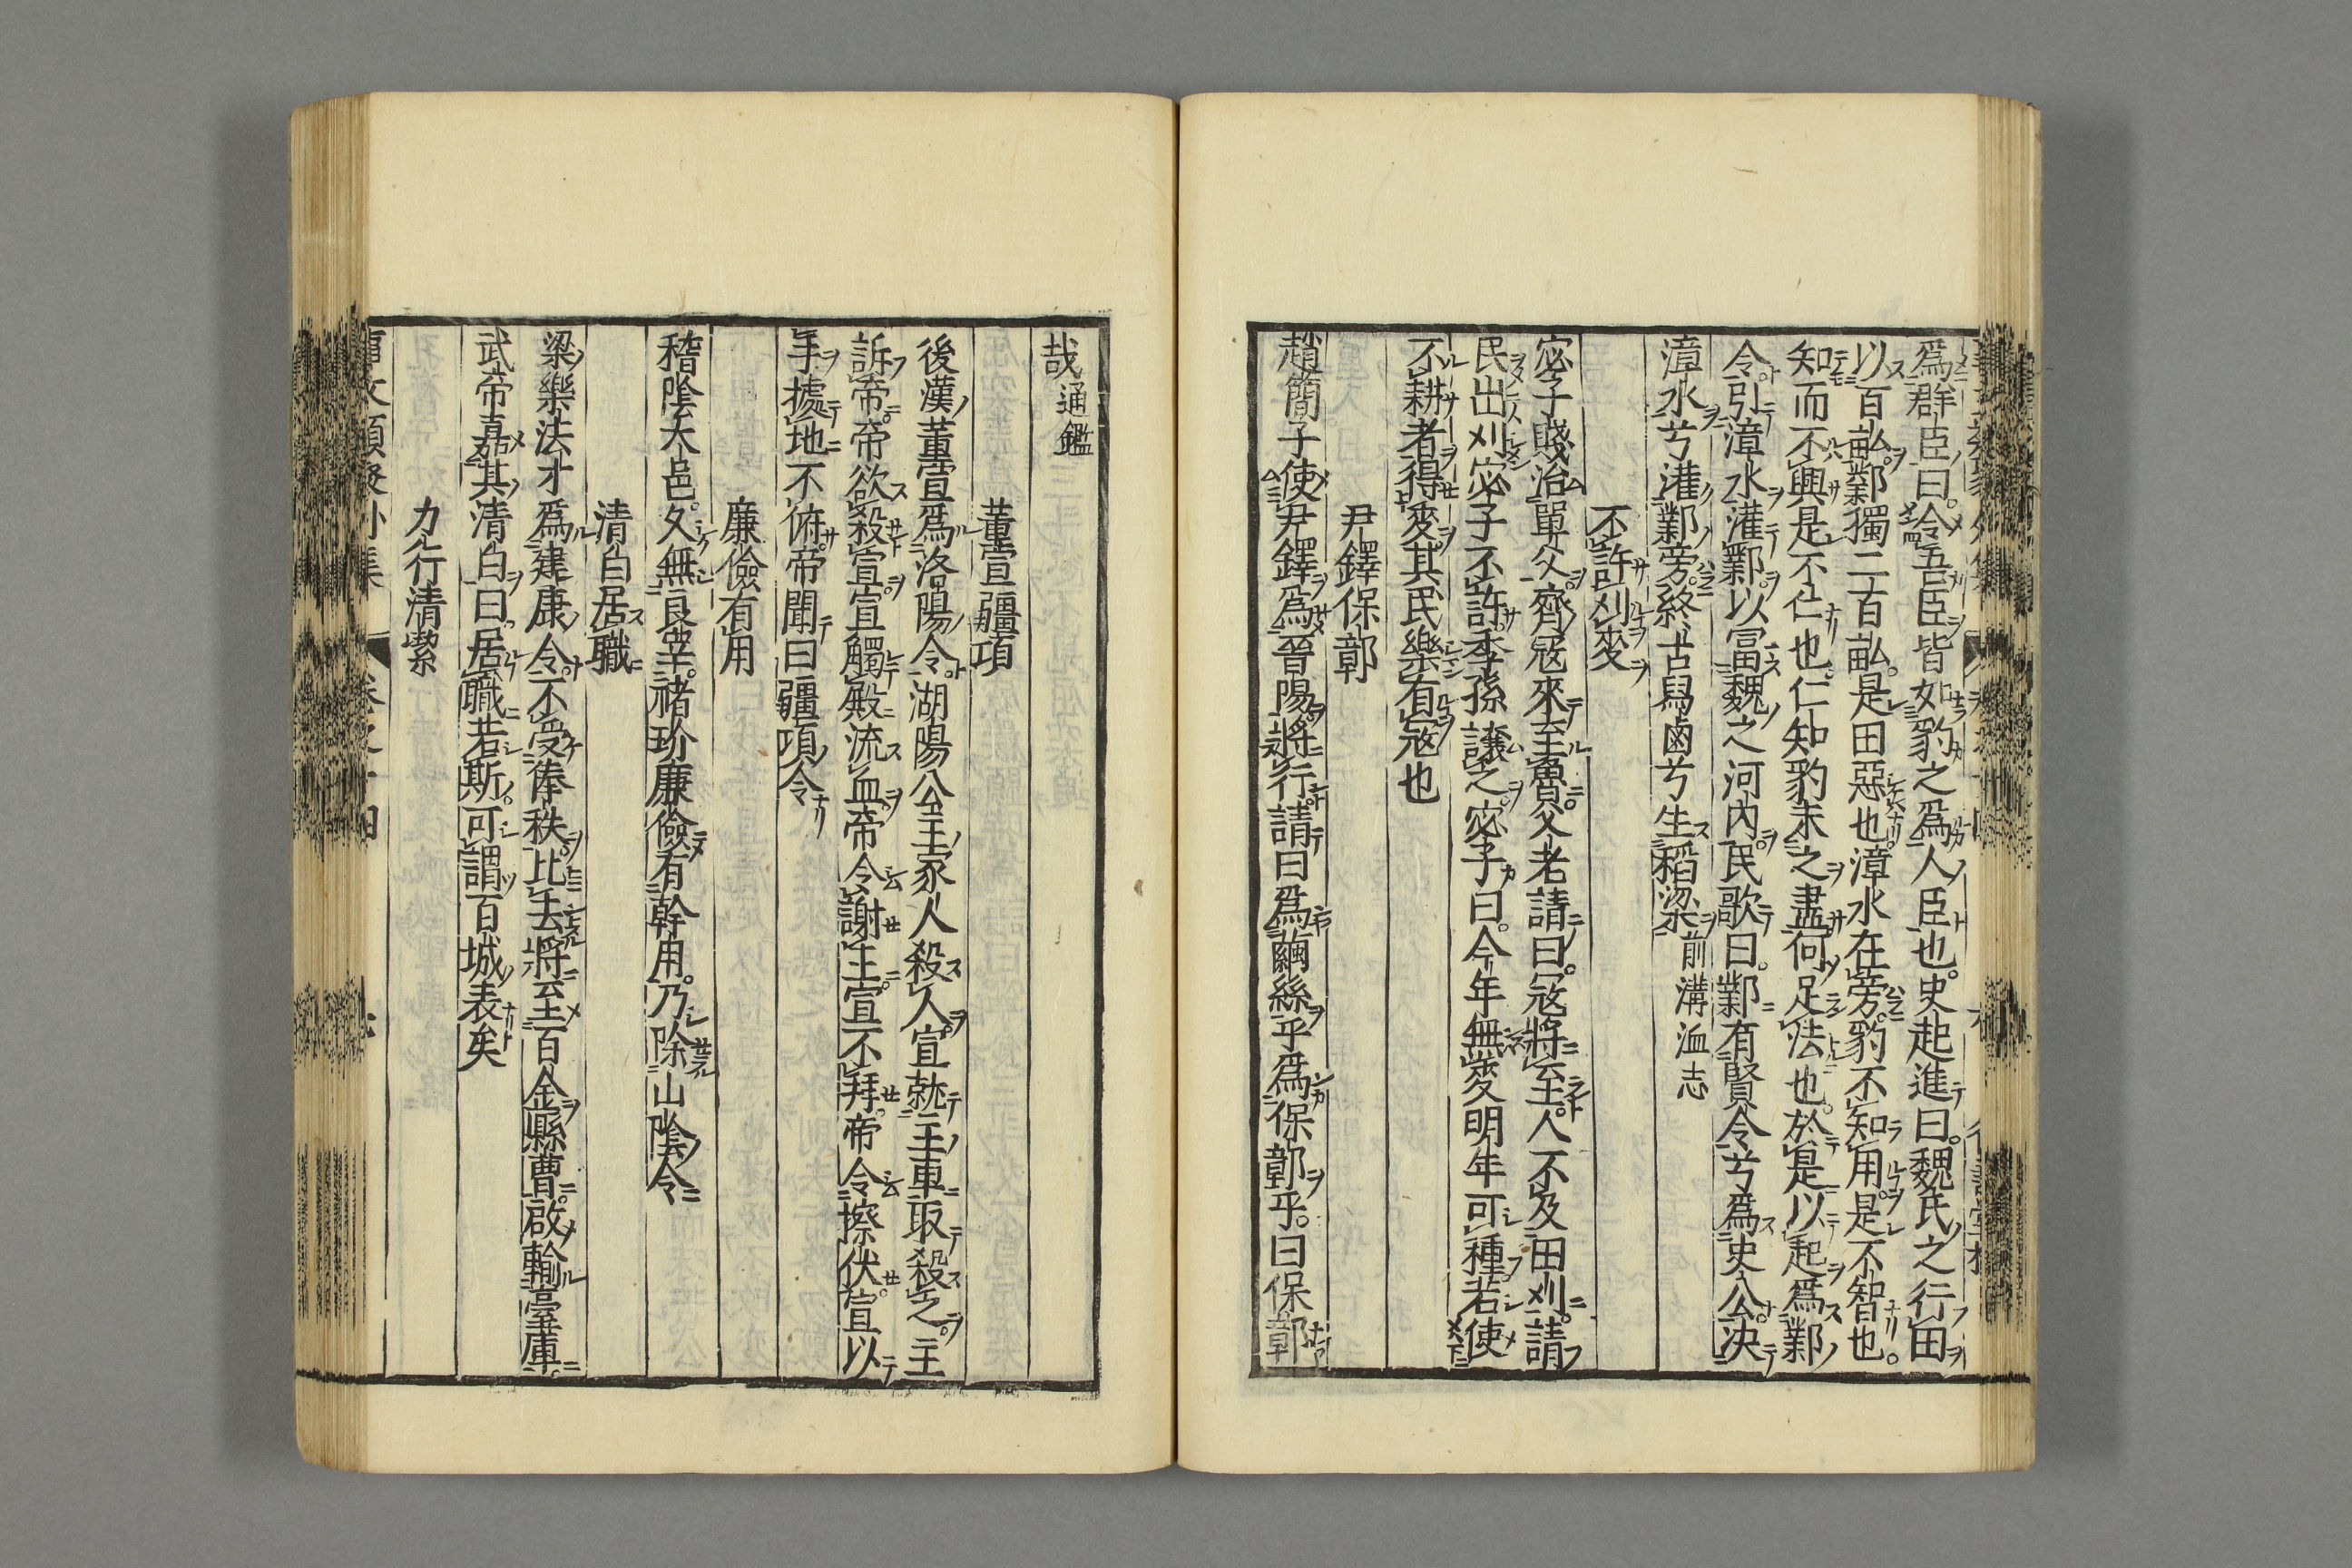 爲群臣曰令吾臣皆如豹之爲人臣也史起進曰魏氏之行田
以百畝鄴獨二百畝是田惡也漳水在旁豹不知用是不智也
知而不興是不仁也仁知豹未之盡何足法也於是以起爲鄴
令引漳水灌鄴以富魏之河内民歌曰鄴有賢令兮爲史公决
漳水兮灌鄴旁終古舄鹵兮生稻梁前溝洫志
不許刈麥
宓子賤治單父齊寇來至魯父老請曰寇將至人不及田刈請
民出刈宓子不許季孫讓之宓子曰今年無麥明年可種若使
不耕者得麥其民樂有寇也
尹鐸保鄣
趙簡子使尹鐸爲晉陽將行請曰爲繭絲乎爲保鄣乎曰保鄣
哉通鑑
董宣疆項
後漢董宣爲洛陽令湖陽公主家人殺人宣就主車取殺之主
訴帝帝欲殺宣宣觸殿流血帝令謝主宣不拜帝令擦伏宣以
手據地不俯帝聞曰疆項令
廉儉有用
稽陰大邑久無良宰禇玠廉儉有幹用乃除山陰令
清白居職
梁樂法才爲建康令不受俸秩比去將至百金縣曹啟輸臺庫
武帝嘉其清白曰居職若斯可謂百城表矣
力行清潔